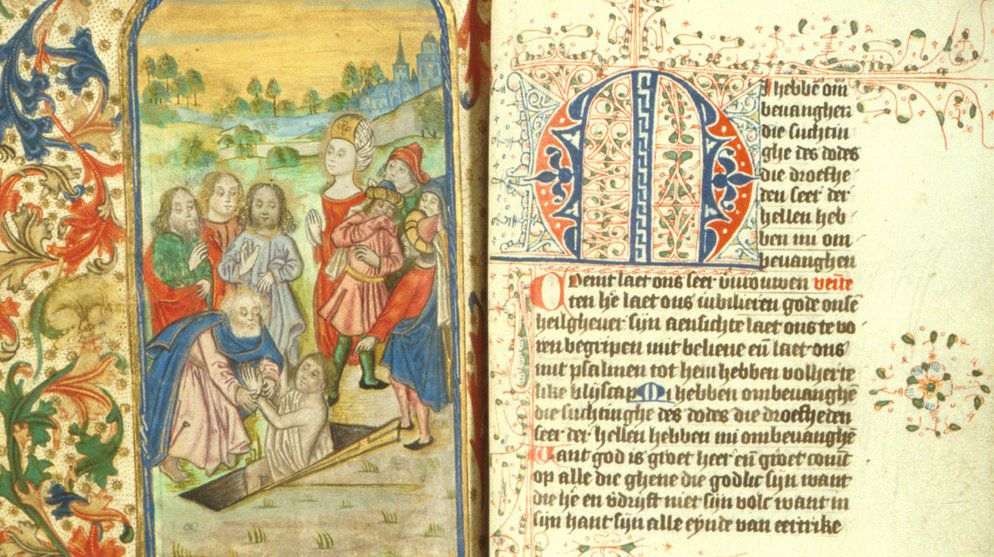 MI hebbē om
beuanghen
die suchtin
ghe des dodes
die droefhe
den seer der
hellen heb
ben mi om
beuanghen
Coemt laet ons seer vuvrouwen venite
ten he laet ons iubilieren gode onsē
heilgheuer sijn aensichte laet ons te vo
ren begripen mit beliene en̄ laet ons
mit psalmen tot hem hebben volherte
like blijscap Mi hebben ombeuanghē
die suchtinghe des dodes die droefheden
seer der hellen hebben mi ombeuanghē
Want god is groet heer en̄ groet conīc
op alle die ghene die godlic sijn want
die he en vdrijft niet sijn volc want in
sijn hant sijn alle eynde van eertrike